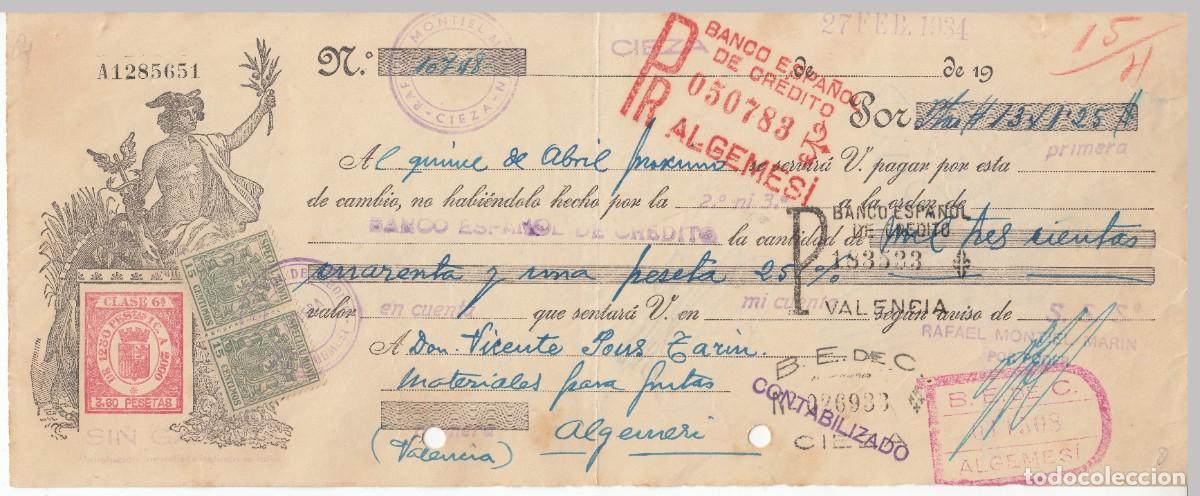 27 FEB. 1934
15/
A1285651
N.º 10748
RAFAEL MONTIEL M
CIEZA
CIEZA
de
de 19
BANCO ESPAÑOL
DE CRÉDITO
050783
ALGEMESÍ
PR
Por Ptas # 1341'25 #
Al quince de Abril proximo se servirá V. pagar por esta primera
de cambio, no habiéndolo hecho por la 2.ª ni 3.ª a la orden de
BANCO ESPAÑOL DE CREDITO la cantidad de mil tres cientas
cuarenta y una peseta 25 %
P
BANCO ESPAÑOL
DE CREDITO
183533
VALENCIA
valor en cuenta que sentará V. en mi cuenta según aviso de S. S. S.
RAFAEL MONTIEL MARIN
CLASE 6ª
DE 1250 PESETAS A 2500
2.60 PESETAS
15 CENTIMOS
15 CENTIMOS
A Don. Vicente Pous Tarin.
Materiales para frutas
Algemesi
(Valencia)
primera
B. E. DE C.
R 026933
CIEZA
CONTABILIZADO
B. E. DE C.
ALGEMESÍ
SIN GASTOS
todocoleccion